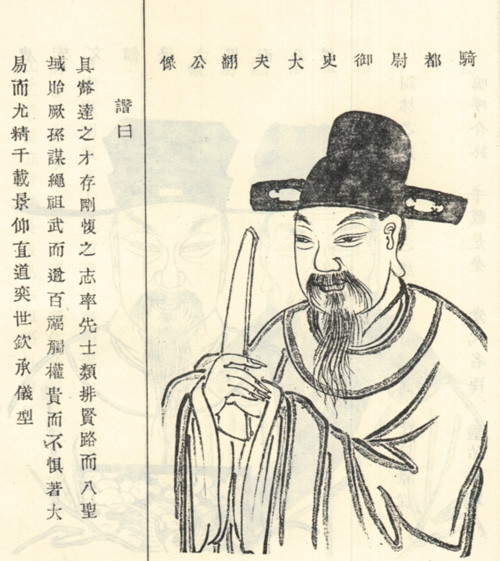 騎都尉御史大夫翻公像
諧曰
具幣達之才存剛愎之志率先士類排賢路而入聖
域貽厥孫謀繩祖武而邀百福觸權貴而不惧著大
易而尤精千載景仰直道奕世欽承儀型